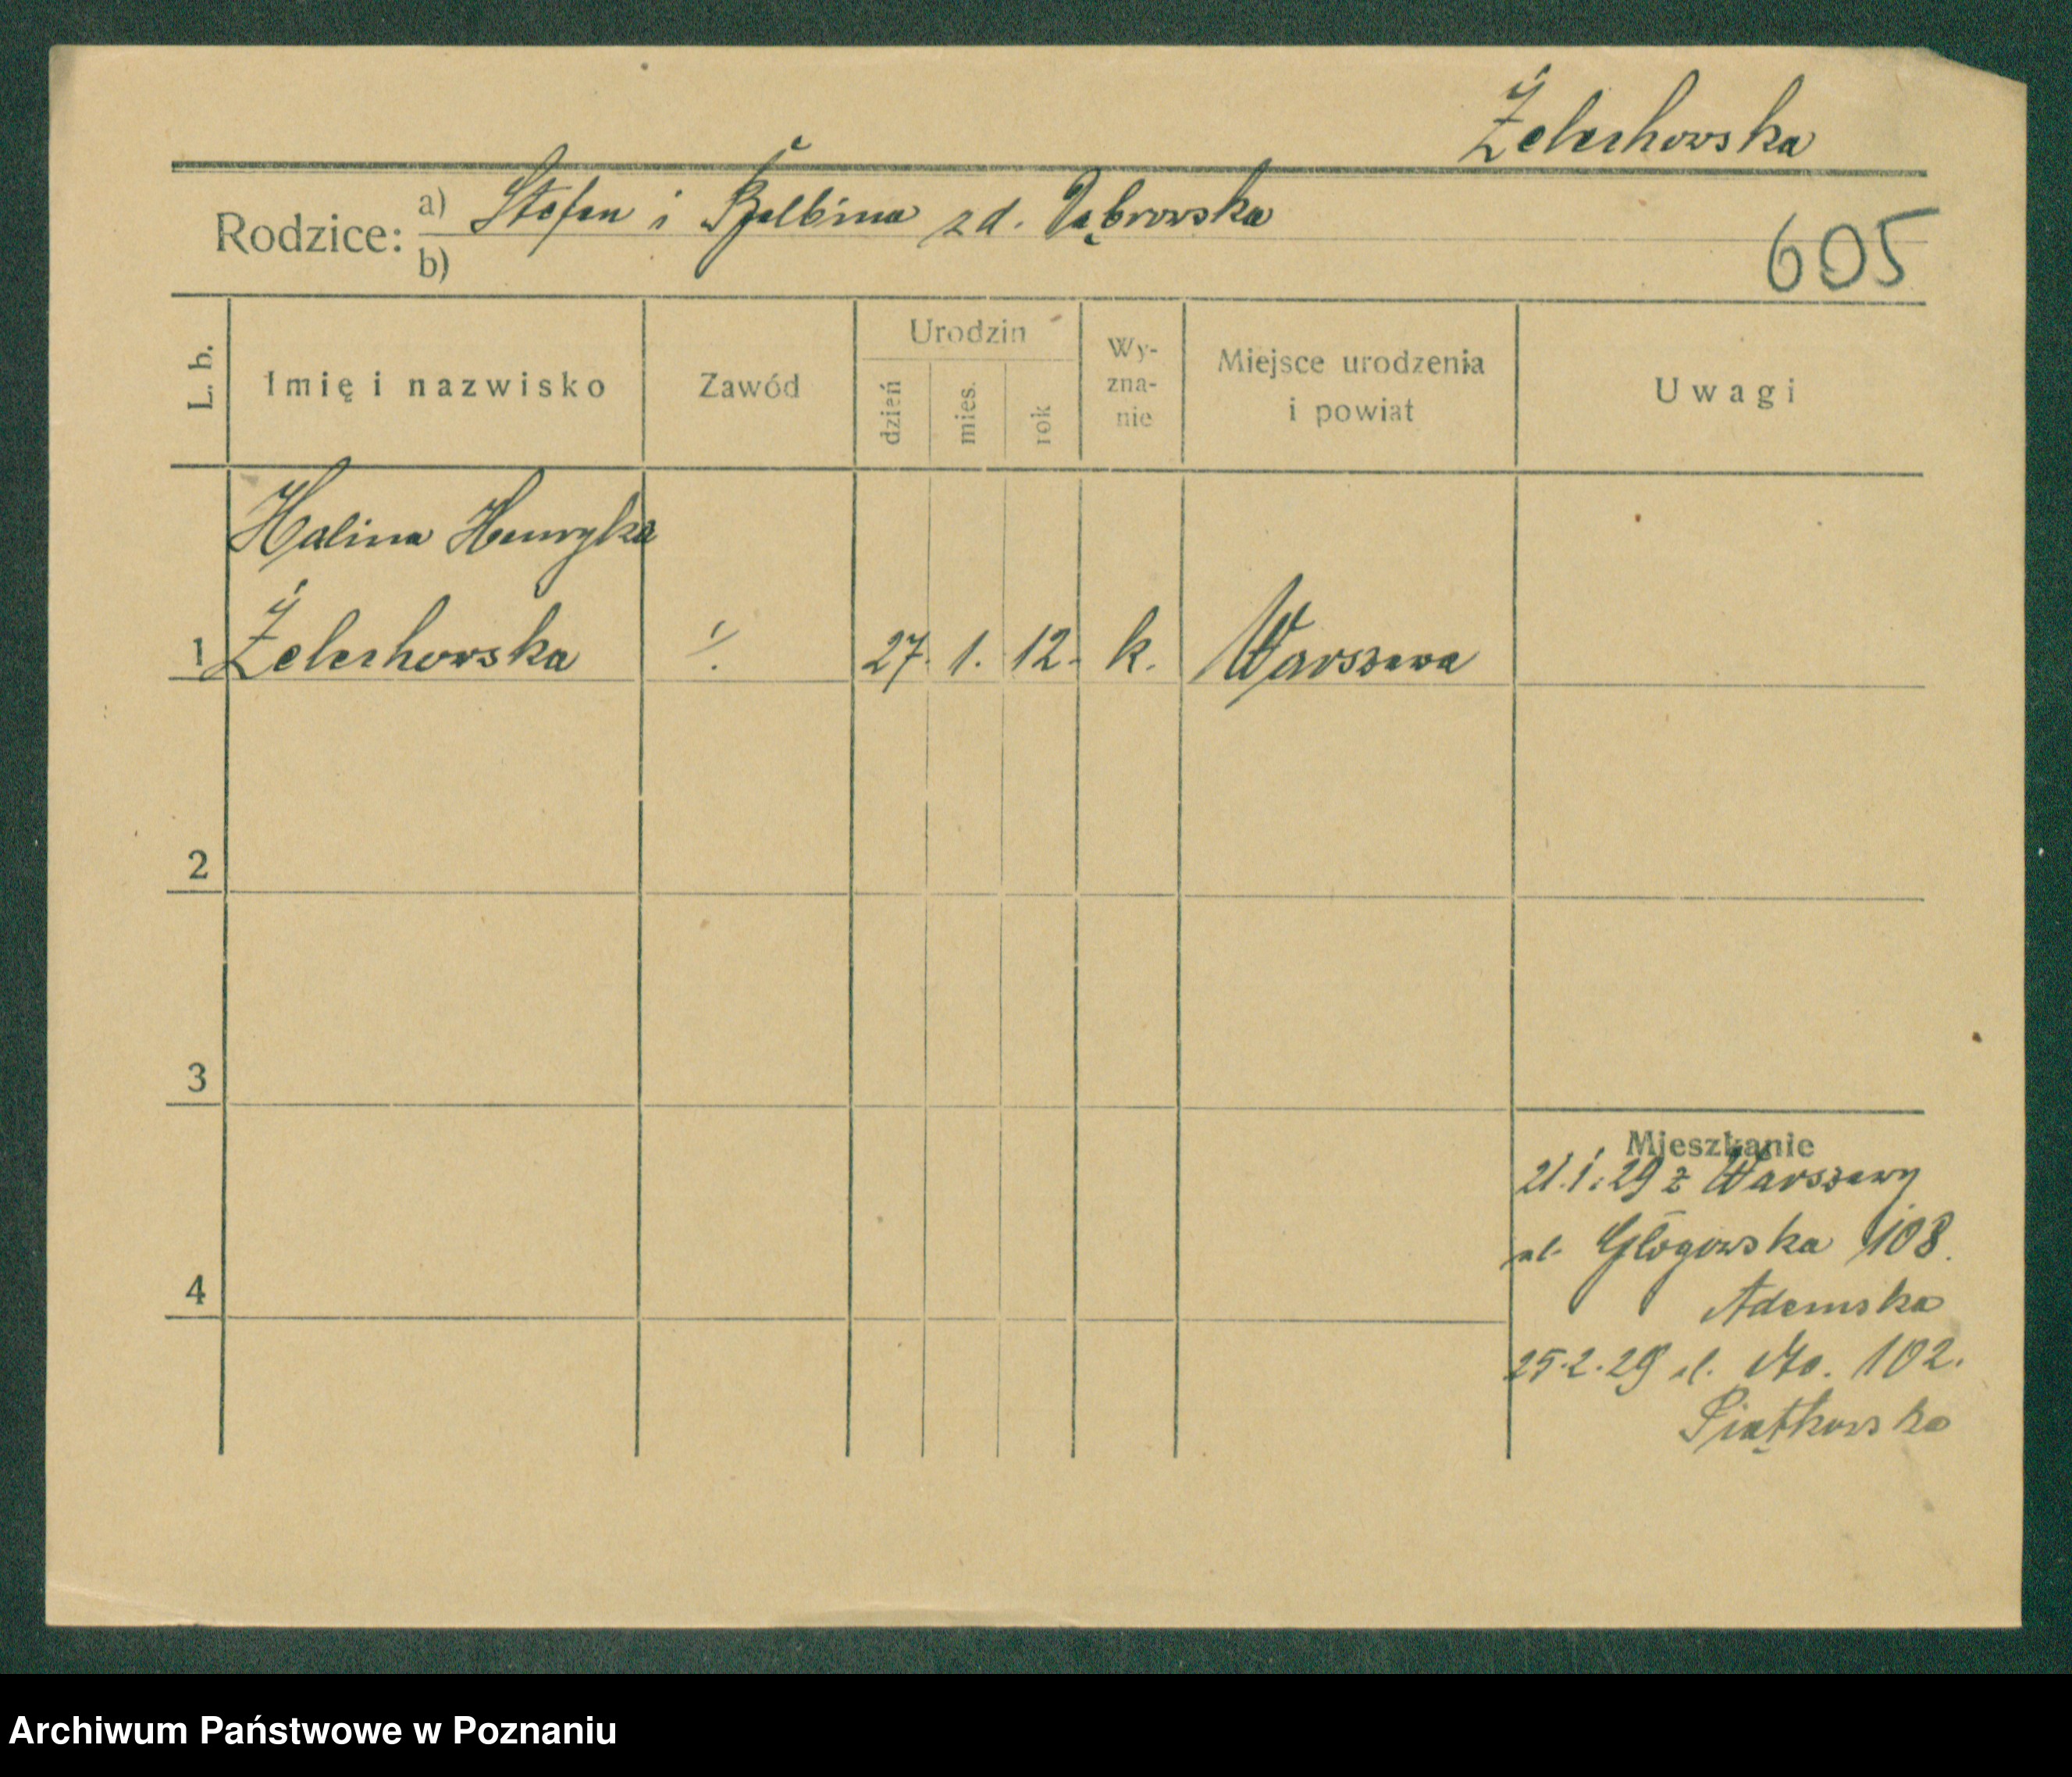 Żelechowska
Rodzice: a) Stefan i Balbina z d. Dąbrowska
b)
605
L. b. Imię i nazwisko Zawód Urodzin dzień mies. rok Wy-zna-nie Miejsce urodzenia i powiat Uwagi
Halina Henryka
1 Żelechowska ./. 27. 1. 12. k. Warszawa
2
3
4
Mieszkanie
21.1.29 z Warszawy
ul. Głogowska 108.
Adamska
25.2.29 ul. 102.
Piątkowska
Archiwum Państwowe w Poznaniu